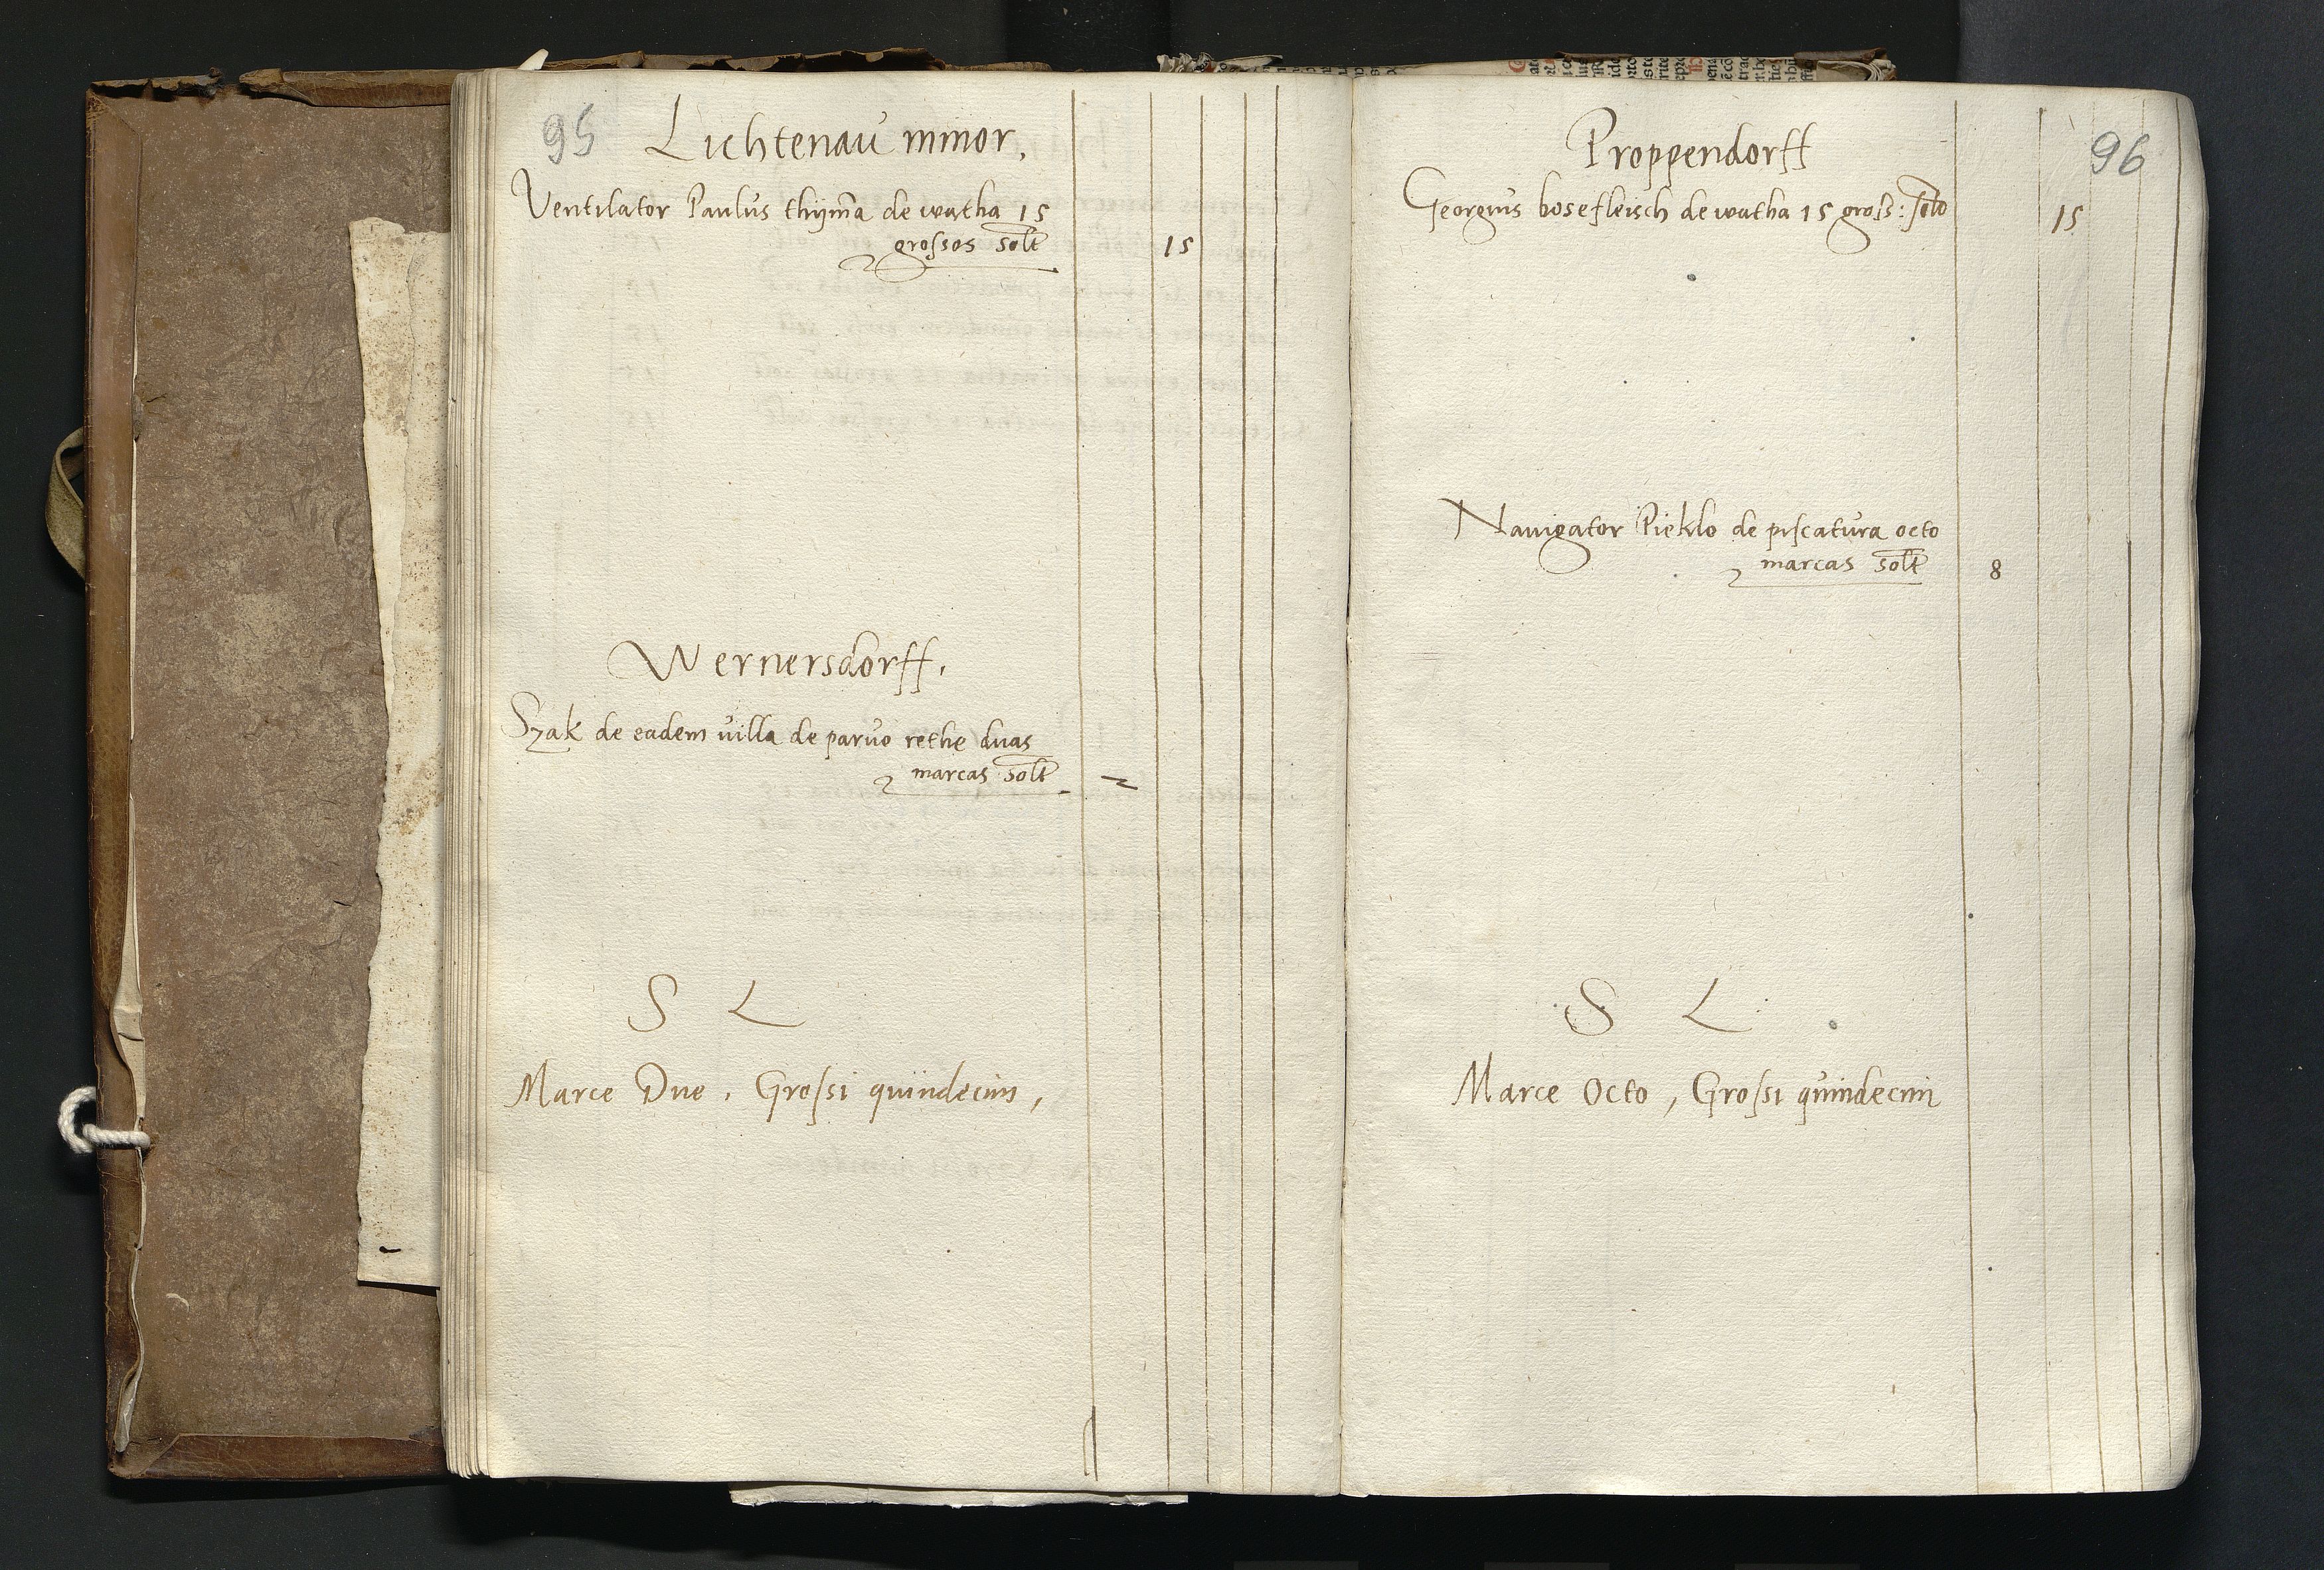 95
Lichtenau minor.
Ventilator Paulus thijma de watha 15
grossos solt 15
Wernersdorff.
Szak de eadem villa de parvo rethe duas
marcas solt 2
S L
Marce Due, Grossi quindecim,
96
Proppendorff
Georgius bosefleisch de watha 15 gross: solt 15
Navigator Pieklo de piscatura octo
marcas solt 8
S L
Marce Octo, Grossi quindecim